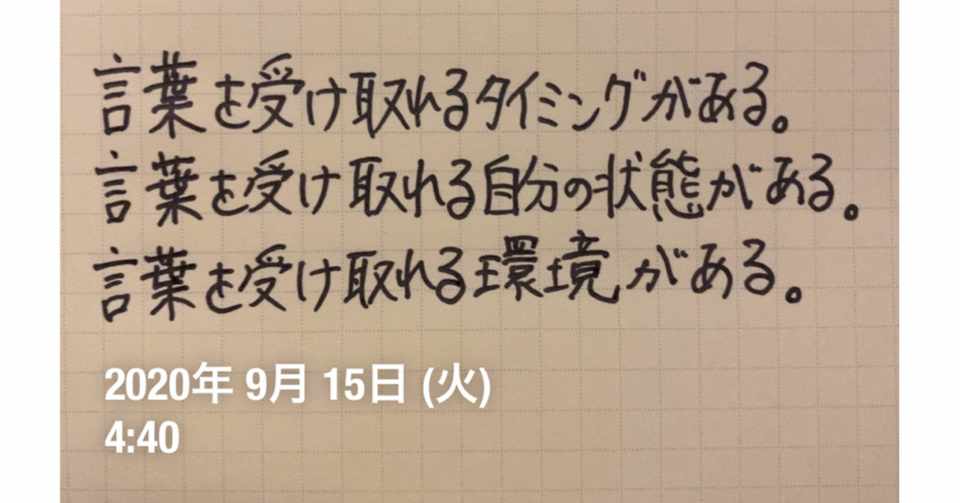 言葉を受け取れるタイミングがある。
言葉を受け取れる自分の状態がある。
言葉を受け取れる環境がある。
2020年 9月 15日 (火)
4:40